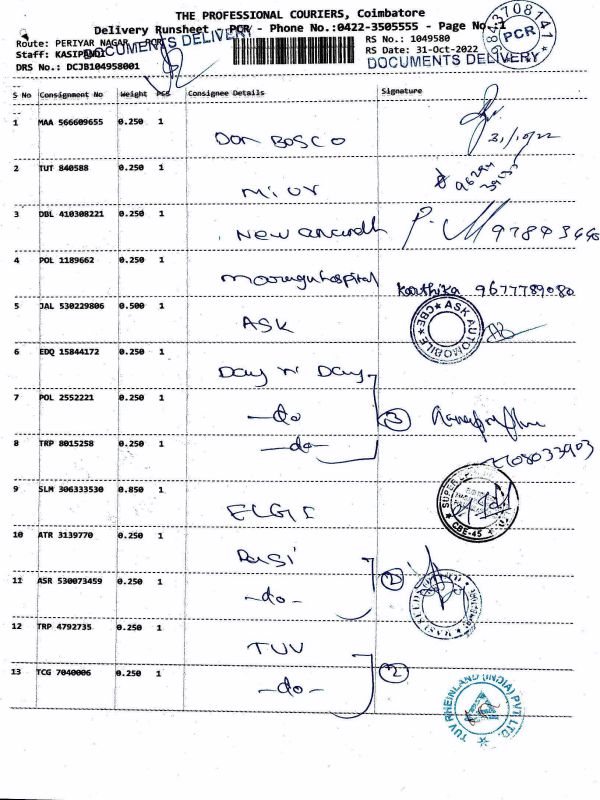 THE PROFESSIONAL COURIERS, Coimbatore
Delivery Runsheet - PCR - Phone No.:0422-3505555 - Page No.:1
Route: PERIYAR NAGAR - PCR
RS No.: 1049580
Staff: KASIPANDI
RS Date: 31-Oct-2022
DRS No.: DCJB104958001
DOCUMENTS DELIVERY
DOCUMENTS DELIVERY
9843708141
PCR
S No Consignment No Weight PCS Consignee Details Signature
1 MAA 566609655 0.250 1 Don Bosco 31/10/22
2 TUT 840588 0.250 1
3 DBL 410308221 0.250 1 New
4 POL 1189662 0.250 1 hospital Karthika 9677789080
5 JAL 530229806 0.500 1 ASK
ASK AUTOMOBILE CBE
6 EDQ 15844172 0.250 1 Day n Day
7 POL 2552221 0.250 1 -do- 3
8 TRP 8015258 0.250 1 -do-
9 SLM 306333530 0.850 1 ELGI
SUPER CBE-45
10 ATR 3139770 0.250 1 Rasi
11 ASR 530073459 0.250 1 -do- 2
12 TRP 4792735 0.250 1 TUV
13 TCG 7040006 0.250 1 -do- 2
TUV RHEINLAND (INDIA) PVT LTD.